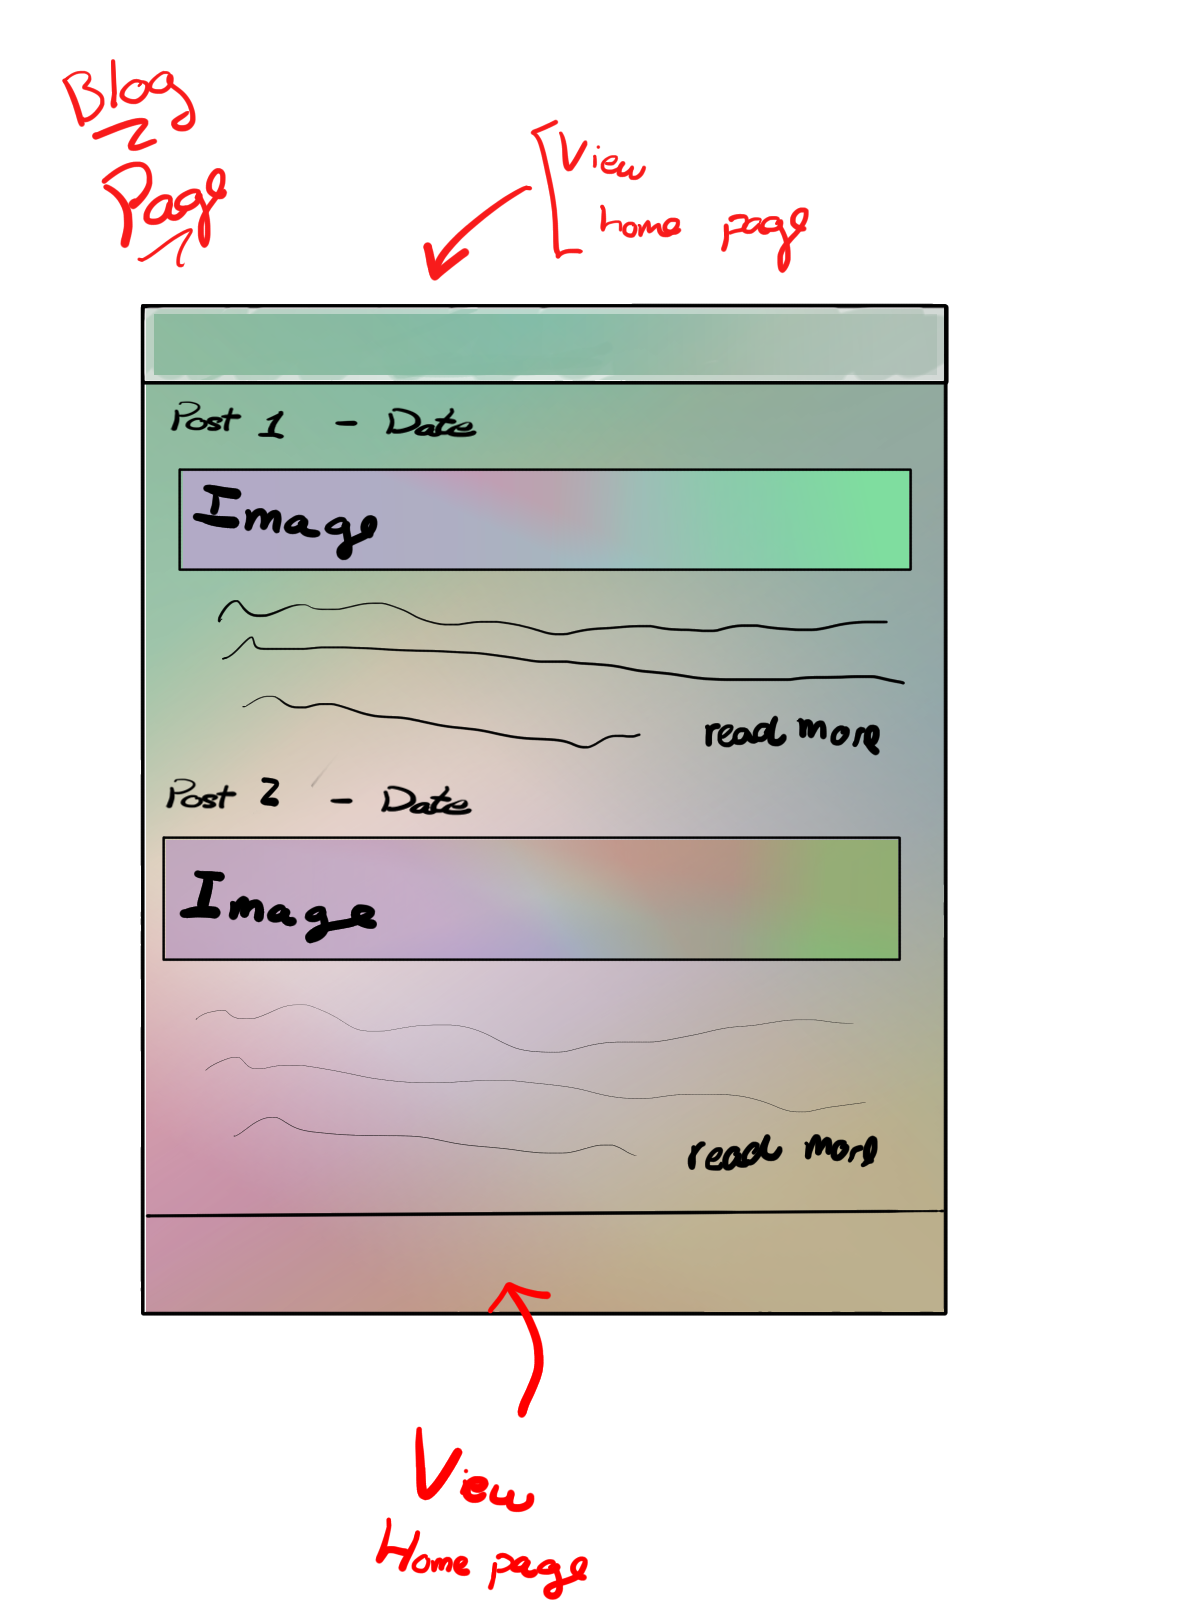 Blog
Page
View
home page
Post 1 - Date
Image
read more
Post 2 - Date
Image
read more
View
Home page